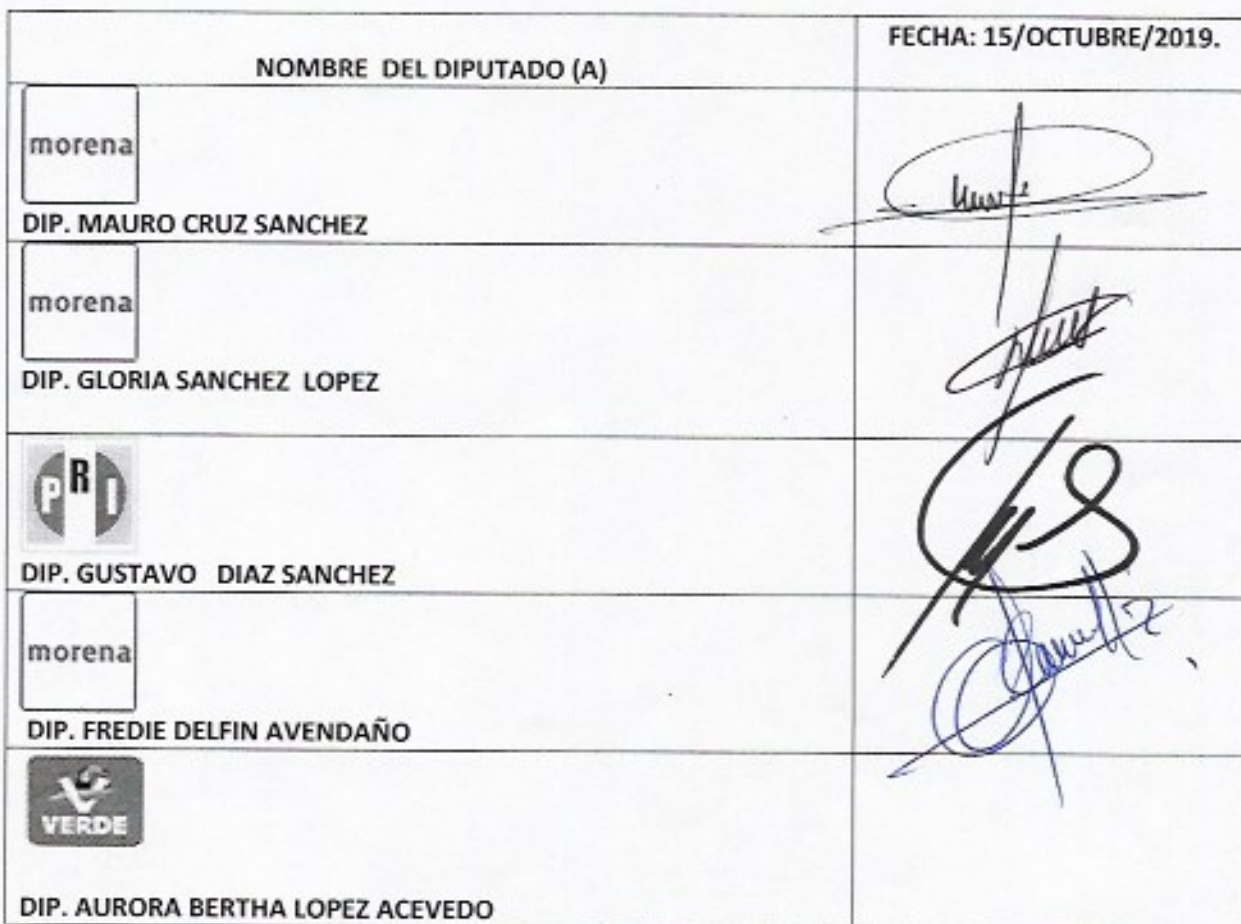 NOMBRE DEL DIPUTADO (A)
FECHA: 15/OCTUBRE/2019.
morena
DIP. MAURO CRUZ SANCHEZ
morena
DIP. GLORIA SANCHEZ LOPEZ
PRI
DIP. GUSTAVO DIAZ SANCHEZ
morena
DIP. FREDIE DELFIN AVENDAÑO
VERDE
DIP. AURORA BERTHA LOPEZ ACEVEDO